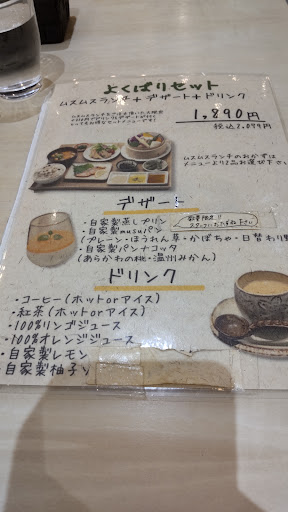 よくばりセット
ムスムスランチ+デザート+ドリンク
1,890円
税込2,079円
ムスムスランチのおかずは
メニューより2品お選び下さい
デザート
・自家製蒸しプリン
・自家製musuパン
(プレーン・ほうれん草・かぼちゃ・日替わり
・自家製パンナコッタ
(あらかわの桃・温州みかん)
数量限定!!
スタッフにおたずね下さい
ドリンク
・コーヒー(ホットorアイス)
・紅茶(ホットorアイス)
・100%リンゴジュース
・100%オレンジジュース
・自家製レモン
自家製柚子